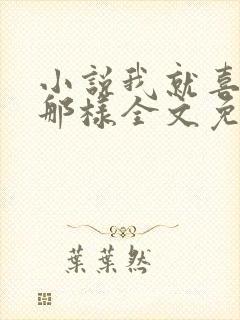 小說我就喜
那樣全文免
葉葉然